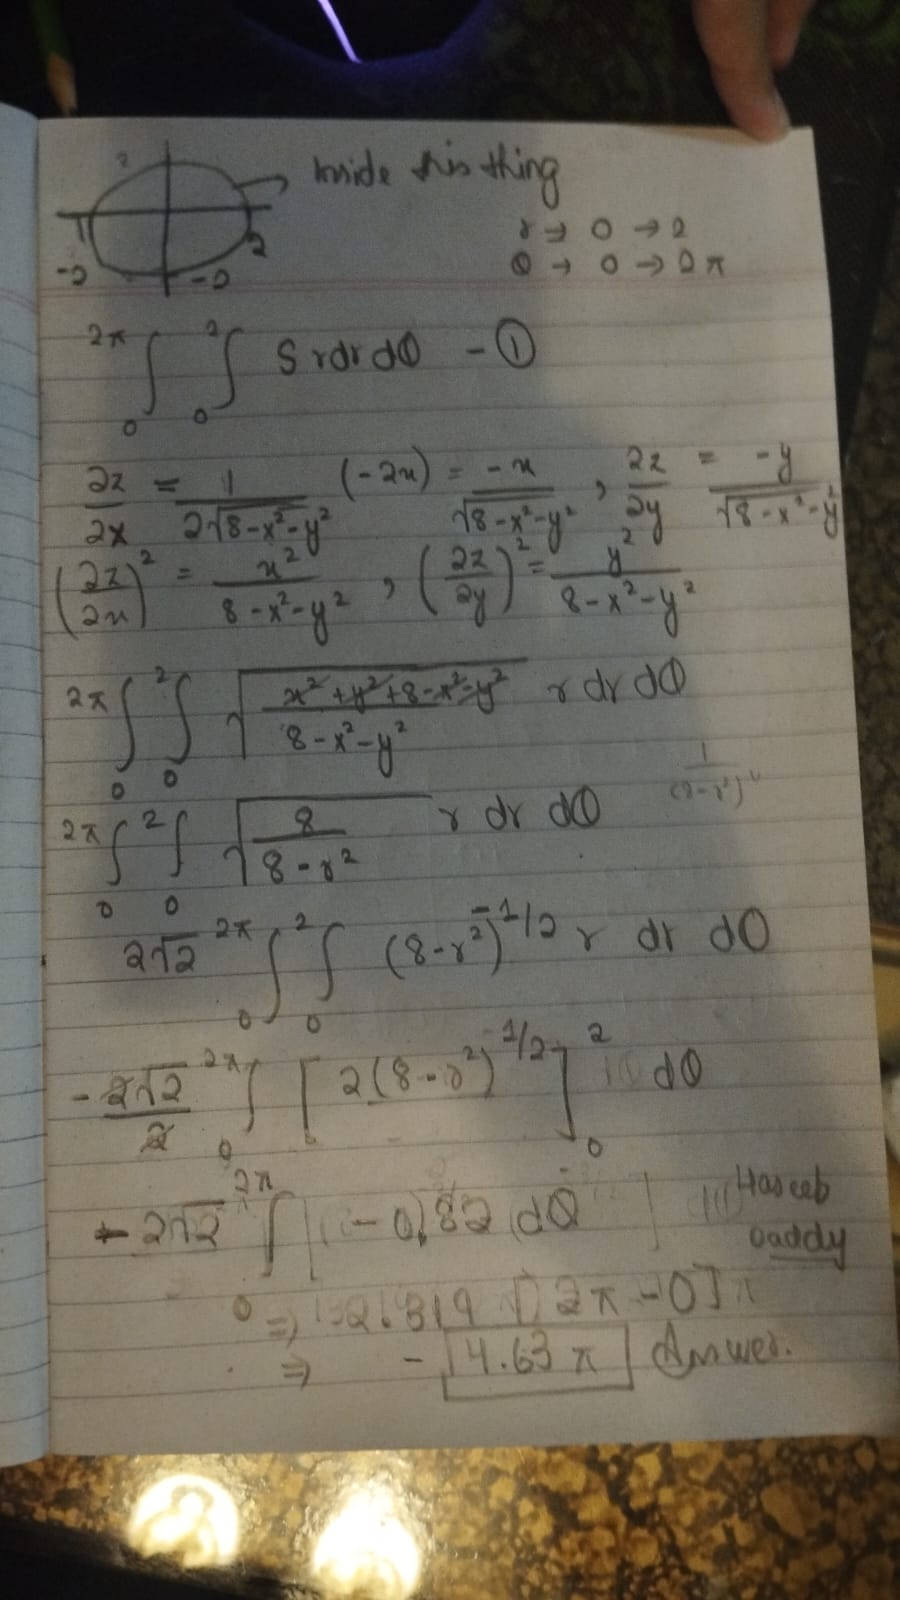 2
-2
2
-2
Inside this thing
r → 0 → 2
θ → 0 → 2π
∫₀^2π ∫₀^2 S r dr dθ - ①
∂z/∂x = 1/(2√(8-x²-y²)) (-2x) = -x/√(8-x²-y²) , ∂z/∂y = -y/√(8-x²-y²)
(∂z/∂x)² = x²/(8-x²-y²) , (∂z/∂y)² = y²/(8-x²-y²)
∫₀^2π ∫₀^2 √((x²+y²+8-x²-y²)/(8-x²-y²)) r dr dθ
∫₀^2π ∫₀^2 √(8/(8-r²)) r dr dθ
2√2 ∫₀^2π ∫₀^2 (8-r²)^-1/2 r dr dθ
-2√2/2 ∫₀^2π [2(8-r²)^1/2]₀^2 dθ
-2√2 ∫₀^2π (-0.82 dθ
Haseeb
Daddy
⇒ [2π-0]
⇒ - 4.63 π Answer.